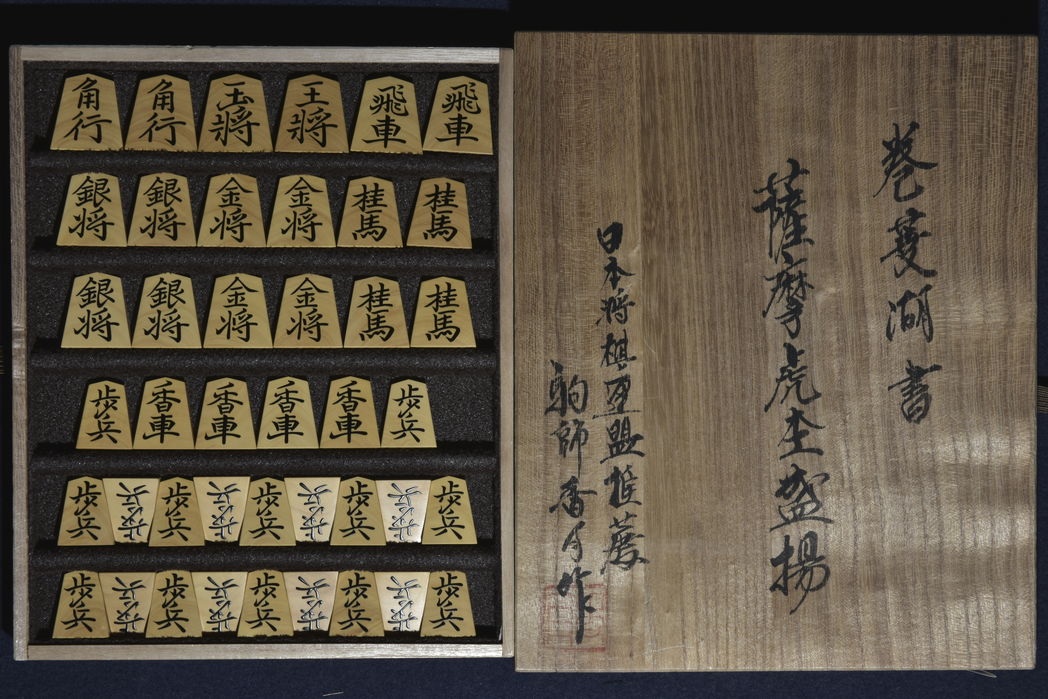 角行 角行 玉将 王将 飛車 飛車
銀将 銀将 金将 金将 桂馬 桂馬
銀将 銀将 金将 金将 桂馬 桂馬
歩兵 香車 香車 香車 香車 歩兵
歩兵 歩兵 歩兵 歩兵 歩兵 歩兵 歩兵 歩兵 歩兵
歩兵 歩兵 歩兵 歩兵 歩兵 歩兵 歩兵 歩兵 歩兵
巻菱湖書
薩摩虎杢盛揚
日本将棋連盟推薦
駒師香月作